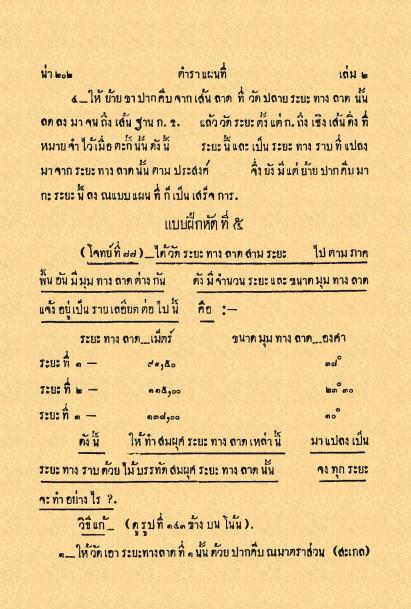 น่า ๒๐๒ ตำราแผนที่ เล่ม ๒
๔_ให้ ย้าย ขา ปาก คีบ จาก เส้น ลาด ที่ วัด ปลาย ระยะ ทาง ลาด นั้น
ลด ลง มา จน ถึง เส้น ฐาน ก. ข. แล้ว วัด ระยะ ตั้ง แต่ ก. ถึง เชิง เส้น ดิ่ง ที่
หมาย จำ ไว้ เมื่อ ตะกี้ นั้น ดังนี้ ระยะ นี้ และ เป็น ระยะ ทาง ราบ ที่ แปลง
มา จาก ระยะ ทาง ลาด นั้น ตาม ประสงค์ จึ่ง ยัง มี แต่ ย้าย ปาก คีบ มา
กะ ระยะ นี้ ลง ณแบบ แผน ที่ ก็ เป็น เสร็จ การ.
แบบฝึกหัด ที่ ๕
(โจทย์ที่ ๗๗)_ได้ วัด ระยะ ทาง ลาด สาม ระยะ ไป ตาม ภาค
พื้น อัน มี มุม ทาง ลาด ต่าง กัน ดัง มี จำนวน ระยะ และ ขนาด มุม ทาง ลาด
แจ้ง อยู่ เป็น ราย เลอียด ต่อ ไป นี้ คือ :—
ระยะ ทาง ลาด...เม็ตร์ ขนาด มุม ทาง ลาด...องศา
ระยะ ที่ ๑ — ๙๑,๕๐ ๓๘°
ระยะ ที่ ๒ — ๑๑๕,๐๐ ๒๓°๓๐
ระยะ ที่ ๓ — ๑๓๘,๐๐ ๑๐°
ดังนี้ ให้ ทำ สมมุต ระยะ ทาง ลาด เหล่า นี้ มา แปลง เป็น
ระยะ ทาง ราบ ด้วย ไม้ บรรทัด สมมุต ระยะ ทาง ลาด นั้น จง ทุก ระยะ
จะ ทำ อย่าง ไร ?.
วิธี แก้_ (ดู รูป ที่ ๑๔๓ ข้าง บน โน้น).
๑_ให้ วัด เอา ระยะ ทาง ลาด ที่ ๑ นั้น ด้วย ปาก คีบ ณมาตราส่วน (สะเกล)